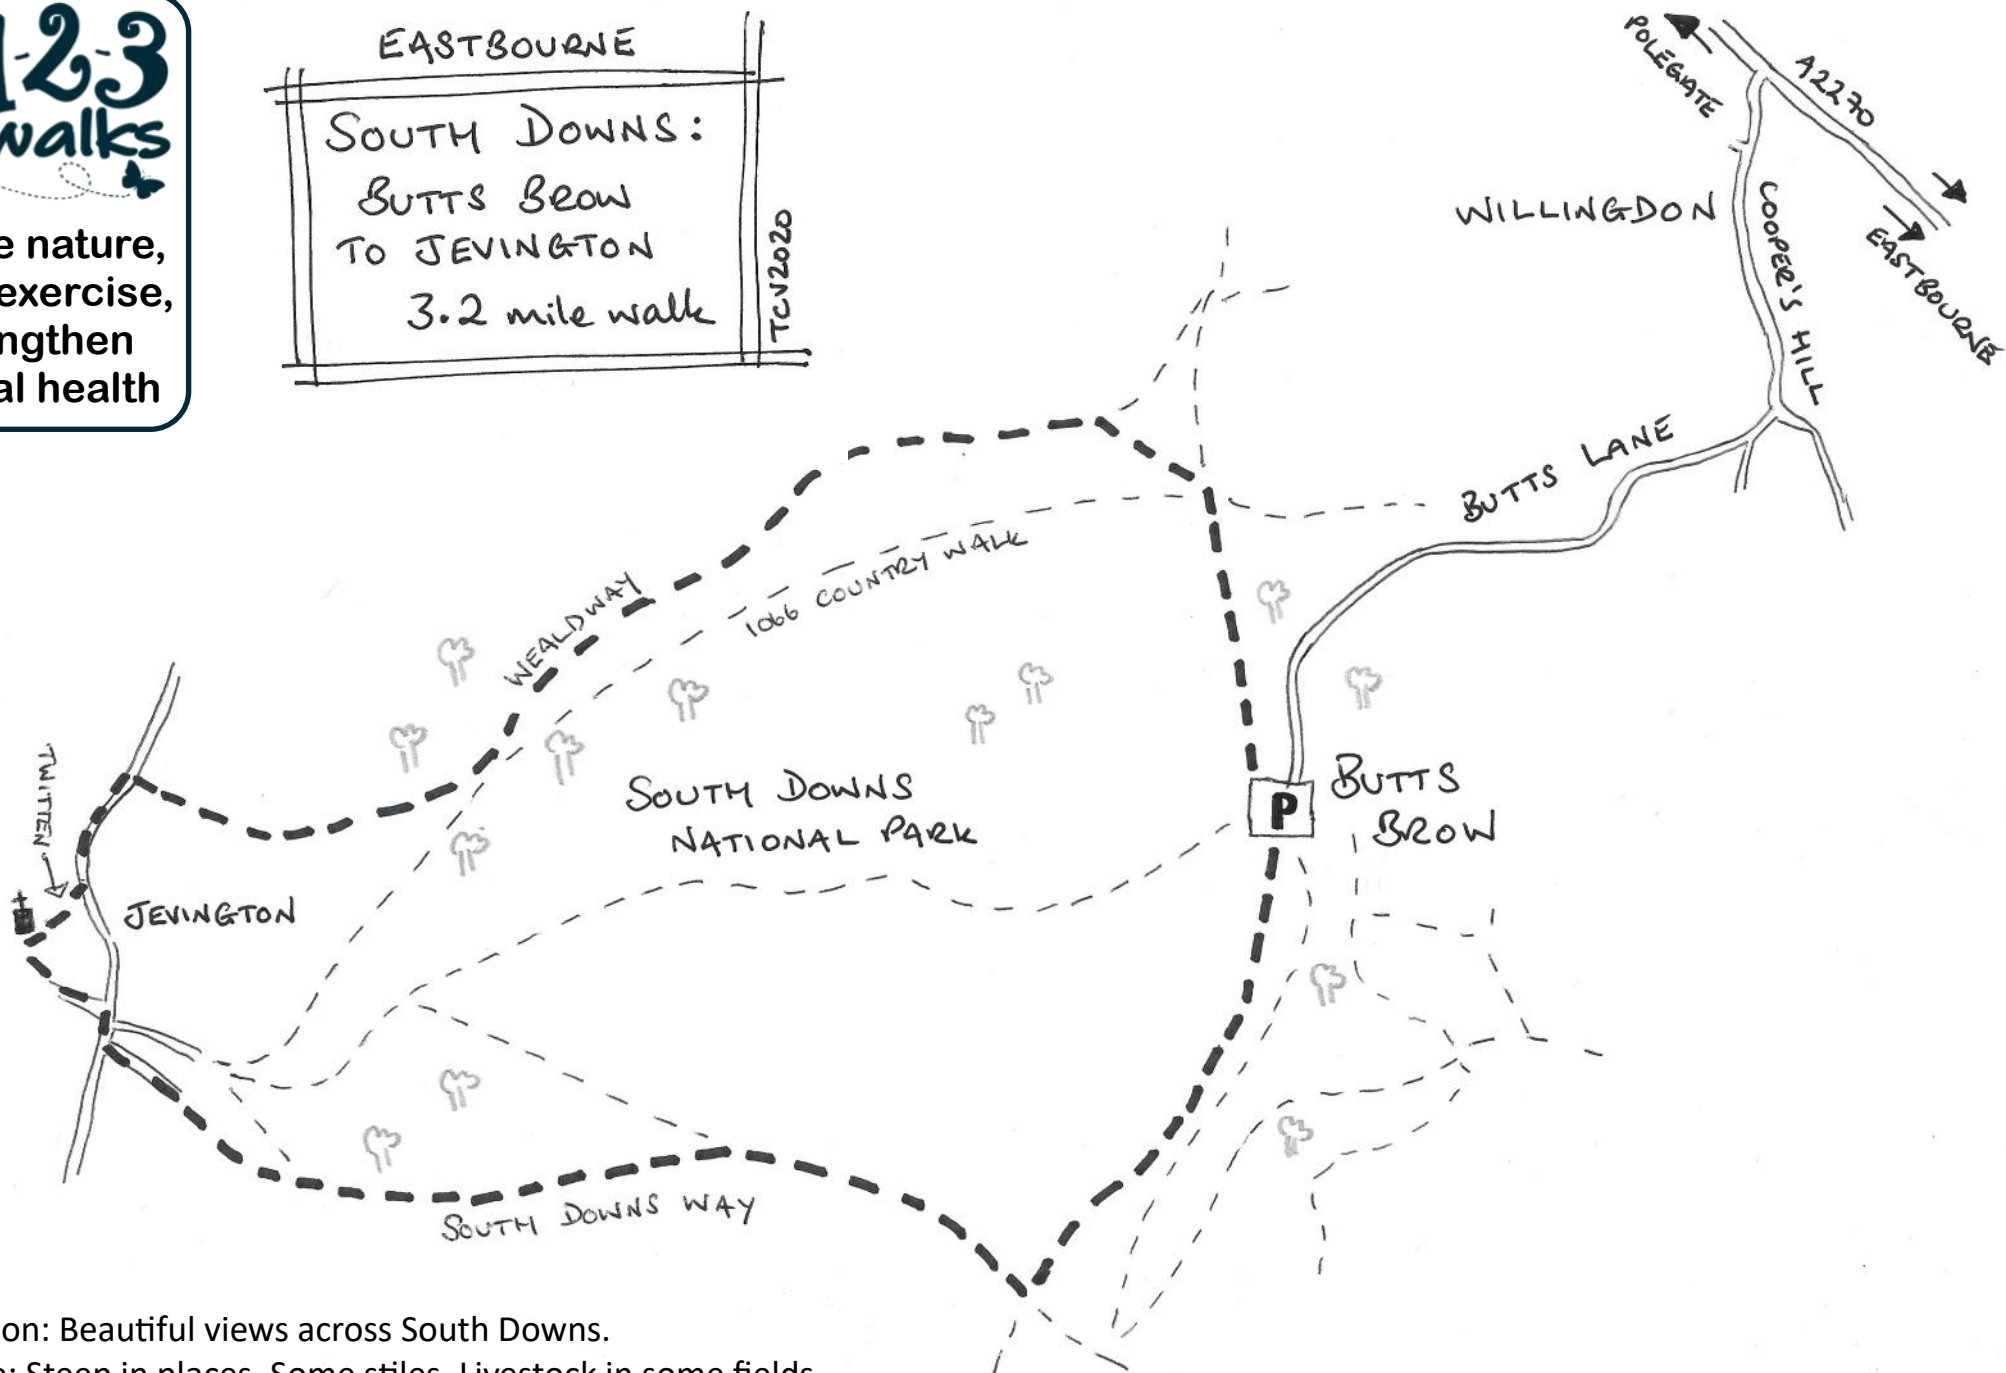 1-2-3
walks
e nature,
exercise,
ngthen
al health
EASTBOURNE
SOUTH DOWNS:
BUTTS BROW
TO JEVINGTON
3.2 mile walk
TCV2020
POLEGATE
A2270
EASTBOURNE
WILLINGDON
COOPER'S HILL
BUTTS LANE
WEALDWAY
1066 COUNTRY WALK
SOUTH DOWNS
NATIONAL PARK
P
BUTTS
BROW
TWITTEN
JEVINGTON
SOUTH DOWNS WAY
on: Beautiful views across South Downs.
: Steep in places. Some stiles. Livestock in some fields